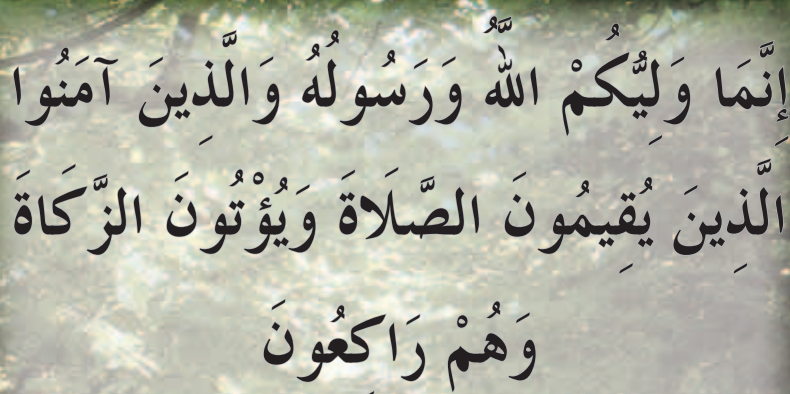 إِنَّمَا وَلِيُّكُمْ اللَّهُ وَرَسُولُهُ وَالَّذِينَ آمَنُوا
الَّذِينَ يُقِيمُونَ الصَّلَاةَ وَيُؤْتُونَ الزَّكَاةَ
وَهُمْ رَاكِعُونَ